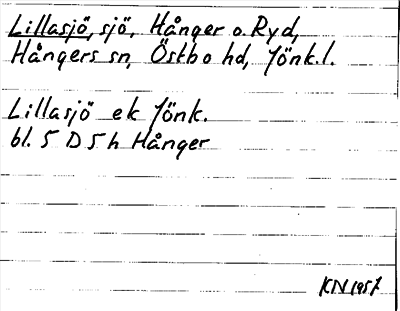 Lillasjö, sjö, Hånger o. Ryd,
Hångers sn, Östbo hd, Jönk.l.
Lillasjö ek Jönk.
bl. 5 D 5 h Hånger
KN 1957